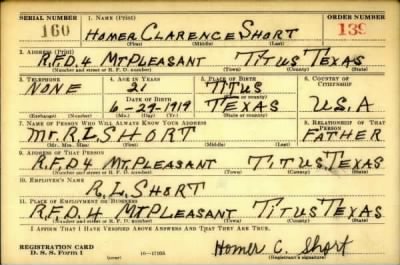 SERIAL NUMBER 1. NAME (Print) ORDER NUMBER
160 HOMER CLARENCE SHORT 139
(First) (Middle) (Last)
2. ADDRESS (Print)
R.F.D.4 MT PLEASANT TITUS TEXAS
(Number and street or R. F. D. number) (Town) (County) (State)
3. TELEPHONE 4. AGE IN YEARS 5. PLACE OF BIRTH 6. COUNTRY OF CITIZENSHIP
NONE 21 TITUS
DATE OF BIRTH (Town or county)
6-29-1919 TEXAS U.S.A
(Exchange) (Number) (Mo.) (Day) (Yr.) (State or country)
7. NAME OF PERSON WHO WILL ALWAYS KNOW YOUR ADDRESS 8. RELATIONSHIP OF THAT PERSON
Mr. R L SHORT FATHER
(Mr., Mrs., Miss) (First) (Middle) (Last)
9. ADDRESS OF THAT PERSON
R.F.D 4 MT PLEASANT TITUS TEXAS
(Number and street or R. F. D. number) (Town) (County) (State)
10. EMPLOYER'S NAME
R. L. SHORT
11. PLACE OF EMPLOYMENT OR BUSINESS
R.F.D. 4 MT PLEASANT TITUS TEXAS
(Number and street or R. F. D. number) (Town) (County) (State)
I AFFIRM THAT I HAVE VERIFIED ABOVE ANSWERS AND THAT THEY ARE TRUE.
REGISTRATION CARD
D. S. S. Form 1 (over) Homer C. Short
(Registrant's signature)